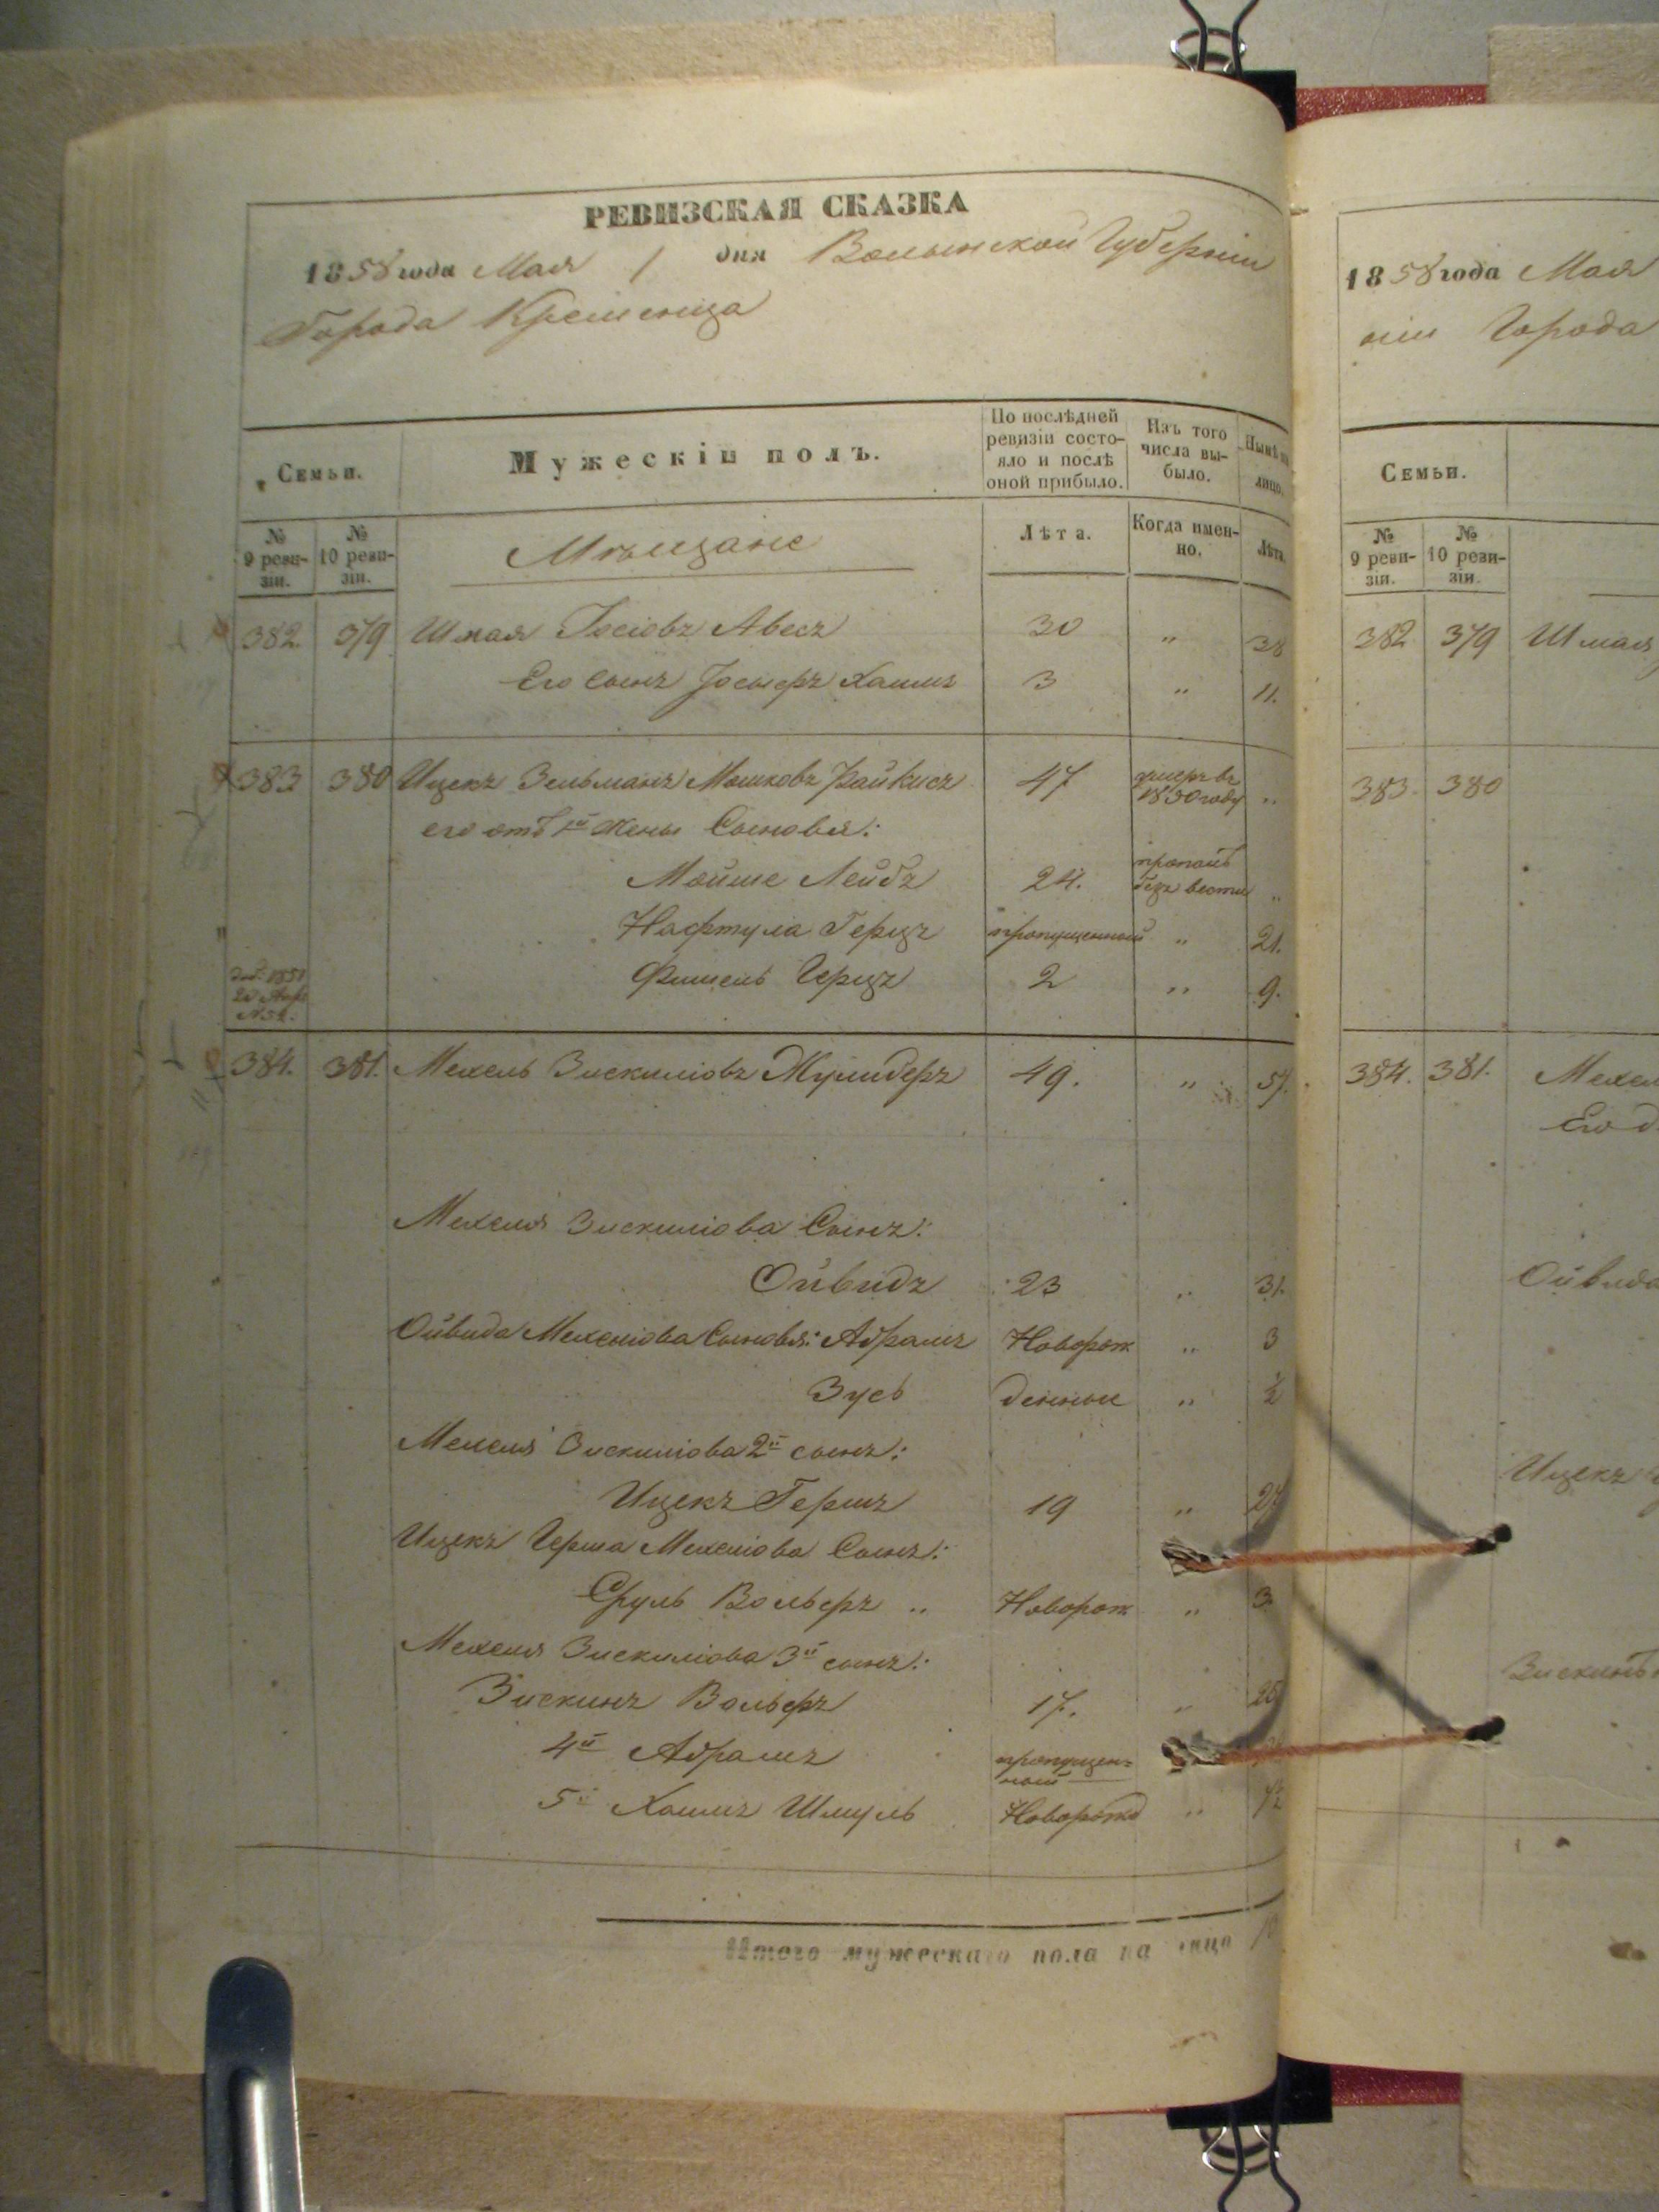 РЕВИЗСКАЯ СКАЗКА
1858 года Мая 1 дня Волынской Губерніи
Города Кременца
Семьи.
Мужескій полъ.
По послѣдней ревизіи состо-
яло и послѣ
оной прибыло.
Изъ того
числа вы-
было.
Нынѣ на
лицо.
№
9 реви-
зіи.
№
10 реви-
зіи.
Мѣщане
Лѣта.
Когда имен-
но.
Лѣта.
382. 379 Шмая Іосіовъ Авесъ 30 " 38
Его сынъ Іосыфъ Хаимъ 3 " 11.
383 380 Ицекъ Зельманъ Мошковъ Райкисъ 47 умеръ въ 1850 году "
его отъ 1й жены Сыновья:
Мойше Лейбъ 24. пропалъ безъ вести "
Нафтула Герцъ пропущенный " 21.
Фишель Герцъ 2 " 9.
1851
384. 381. Мехель Зискиліовъ 49. " 57.
Мехеля Зискиліова Сынъ:
Ойвидъ 23 " 31.
Ойвида Мехеліова Сыновья: Абрамъ Новорож " 3
Зусь денные " ½
Мехеля Зискиліова 2й сынъ:
Ицекъ Гершъ 19 " 27
Ицекъ Герша Мехеліова Сынъ:
Сруль Вольфъ " Новорож " 3.
Мехеля Зискиліова 3й сынъ:
Зискинъ Вольфъ 17. " 25
4й Абрамъ пропущен=
ный
5й Хаимъ Шмуль Новорожд " ½
Итого мужескаго пола на лицо
1858 года Мая
ніи Города
Семьи.
№
9 реви-
зіи.
№
10 реви-
зіи.
382 379 Шмая
383. 380
384. 381. Мехел
Его д
Ойвида
Ицекъ
Зискинъ